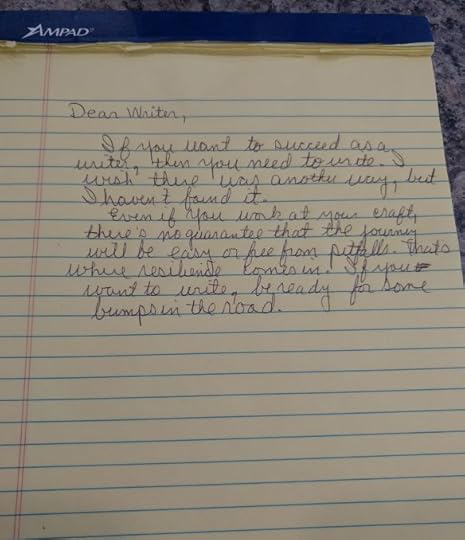 AMPAD
Dear Writer,
If you want to succeed as a
writer, then you need to write. I
wish there was another way, but
I haven't found it.
Even if you work at your craft,
there's no guarantee that the journey
will be easy or free from pitfalls. That's
where resilience comes in. If you
want to write, be ready for some
bumps in the road.